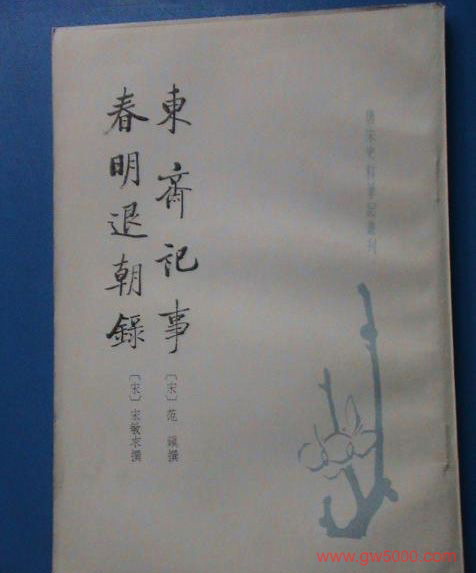 唐宋史料筆記叢刊
東齋記事
〔宋〕范鎮撰
春明退朝錄
〔宋〕宋敏求撰
www.gw5000.com